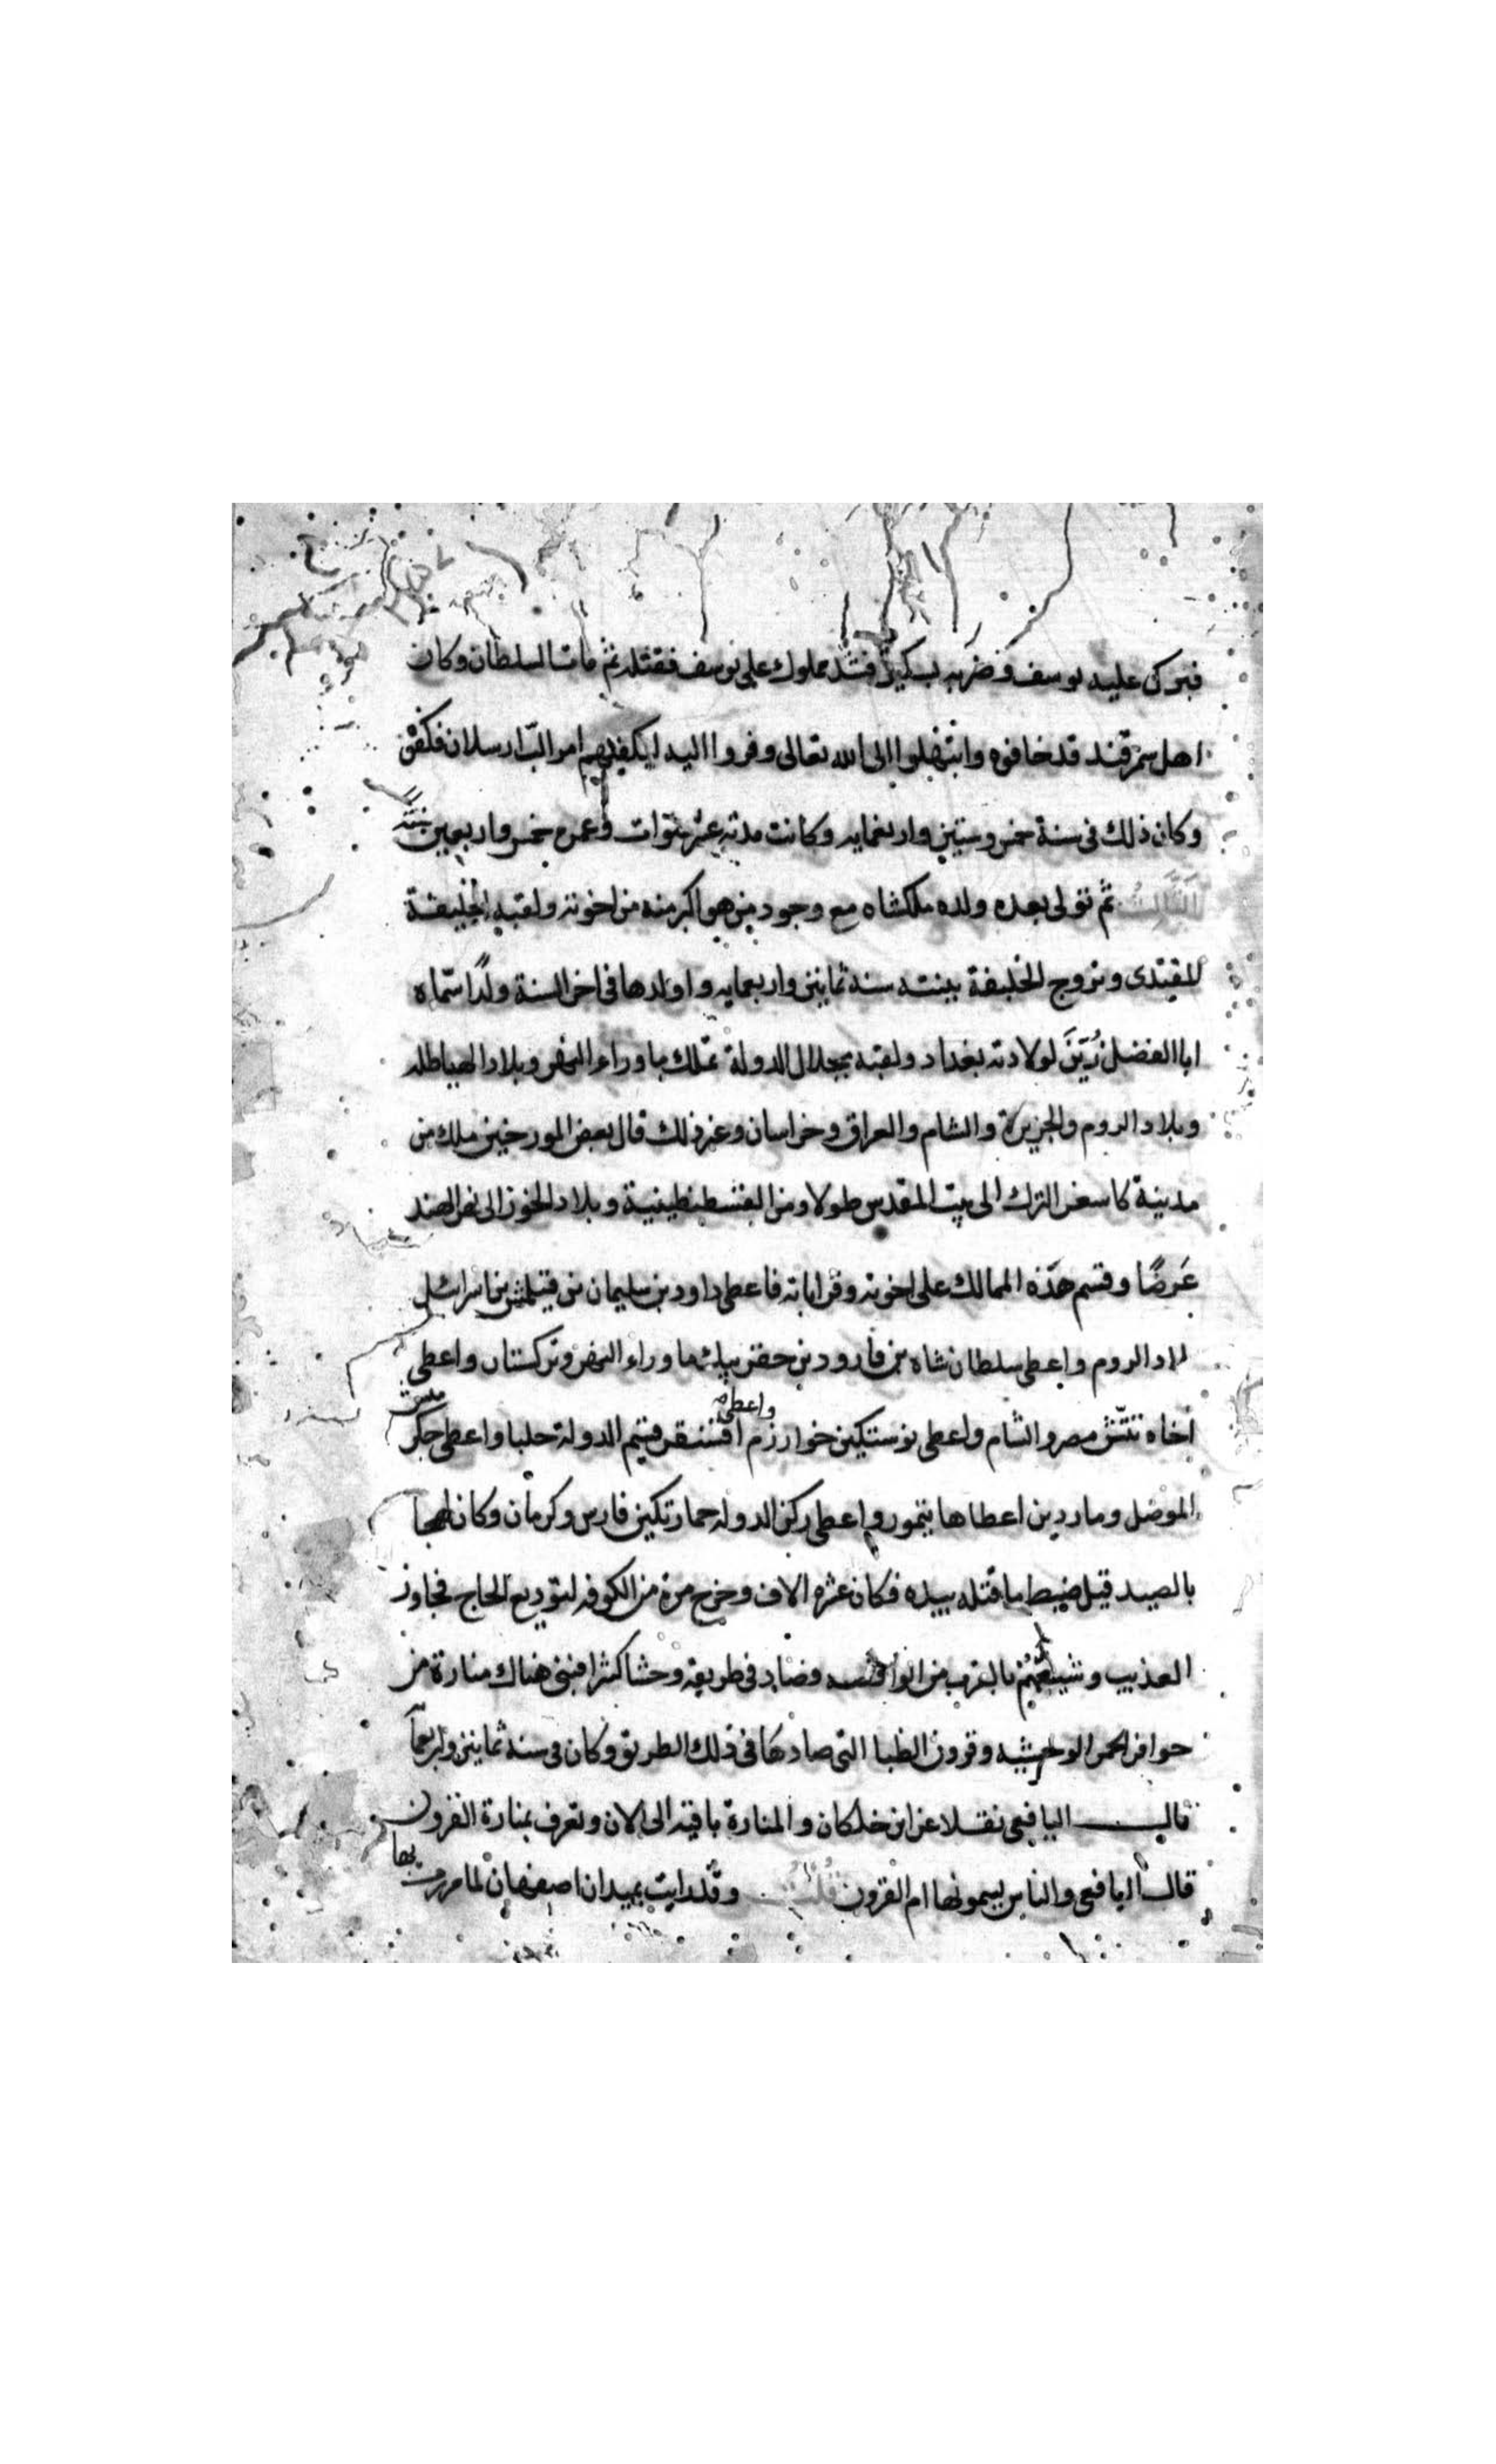 فبرك عليه يوسف وضربه بسكين فشد مملوك على يوسف فقتله ثم مات السلطان وكان
اهل سمرقند قد خافوه وابتهلوا الى الله تعالى وفروا اليه ليكفيهم امر الب ارسلان فكفى
وكان ذلك فى سنة خمس وستين واربعمايه وكانت مدته عشر سنوات وعمره خمس واربعين سنة
الثالث ثم تولى بعده ولده ملكشاه مع وجود من هو اكبر منه من اخوته ولقبه الخليفة
المقتدى وتزوج الخليفة ببنته سنة ثمانين واربعمايه واولدها فى اخر السنة ولدًا سماه
ابا الفضل زُيّنَ لولادته بغداد ولقبه بجلال الدولة تملك ما وراء النهر وبلاد الهياطله
وبلاد الروم والجزيرة والشام والعراق وخراسان وغير ذلك قال بعض المورخين ملك من
مدينة كاسغر الترك الى بيت المقدس طولا ومن القسطنطينية وبلاد الخزر الى نهر الهند
عَرضًا وقسم هذه الممالك على اخوته وقراباته فاعطى داود بن سليمان بن قتيلمش بن اسرائيل
بلاد الروم واعطى سلطان شاه بن قارود بن جفر بيك ما وراء النهر وتركستان واعطى
اخاه تتش مصر والشام واعطى نوستكين خوارزم واعطى اقسنقر قسيم الدولة حلبا واعطى جكرمش
الموصل وماردين اعطاها تيمور واعطى ركن الدوله خمارتكين فارس وكرمان وكان لهجا
بالصيد قيل ضبط ما قتله بيده فكان عشره الاف وخرج مرة من الكوفه لتوديع الحاج فجاوز
العذيب وشيعهم بالقرب من الواقصه وصاد فى طريقه وحشا كثيرا فبنى هناك منارة من
حوافر الحمر الوحشيه وقرون الظبا التى صادها فى ذلك الطريق وكان فى سنة ثمانين واربعما
قال اليافعى نقلا عن ابن خلكان والمنارة باقيه الى الان وتعرف بمنارة القرون
قال اليافعى والناس يسمونها ام القرون قلت وقد رايت بميدان اصفهان لما مررت بها